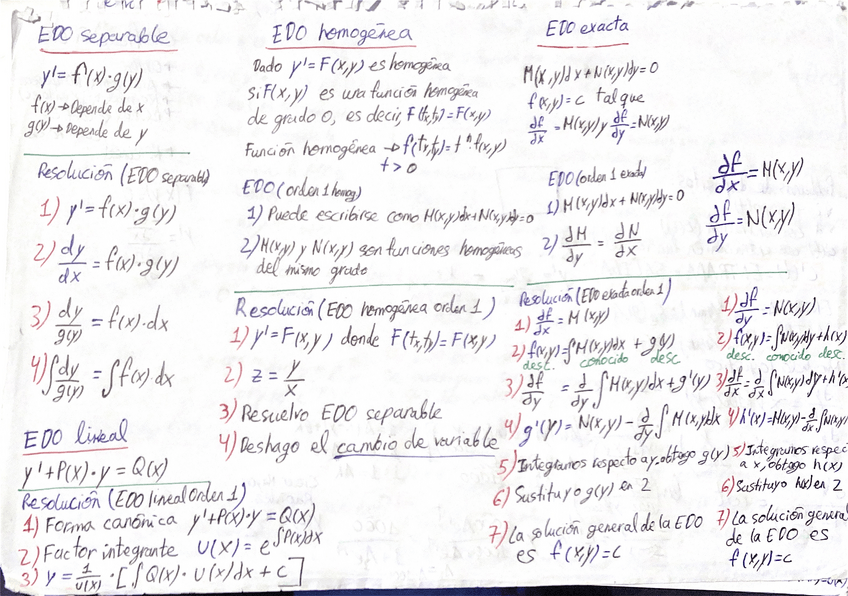 EDO separable
y' = f'(x)·g(y)
f(x) → Depende de x
g(y) → Depende de y
Resolución (EDO separable)
1) y' = f(x)·g(y)
2) dy/dx = f(x)·g(y)
3) dy/g(y) = f(x)·dx
4) ∫dy/g(y) = ∫f(x)·dx
EDO lineal
y' + P(x)·y = Q(x)
Resolución (EDO lineal orden 1)
1) Forma canónica y' + P(x)·y = Q(x)
2) Factor integrante U(x) = e^∫P(x)dx
3) y = 1/U(x) · [∫Q(x)·U(x)dx + C]
EDO homogénea
Dado y' = F(x,y) es homogénea
si F(x,y) es una función homogénea
de grado 0, es decir, F(tx,ty) = F(x,y)
Función homogénea → f(tx,ty) = t^n·f(x,y)
t > 0
EDO (orden 1 homog)
1) Puede escribirse como M(x,y)dx + N(x,y)dy = 0
2) M(x,y) y N(x,y) son funciones homogéneas
del mismo grado
Resolución (EDO homogénea orden 1)
1) y' = F(x,y) donde F(tx,ty) = F(x,y)
2) z = y/x
3) Resuelvo EDO separable
4) Deshago el cambio de variable
EDO exacta
M(x,y)dx + N(x,y)dy = 0
f(x,y) = c tal que
∂f/∂x = M(x,y) y ∂f/∂y = N(x,y)
EDO (orden 1 exacta)
1) M(x,y)dx + N(x,y)dy = 0
2) ∂M/∂y = ∂N/∂x
∂f/∂x = M(x,y)
∂f/∂y = N(x,y)
Resolución (EDO exacta orden 1)
1) ∂f/∂x = M(x,y)
2) f(x,y) = ∫M(x,y)dx + g(y)
desc. conocido desc.
3) ∂f/∂y = ∂/∂y ∫M(x,y)dx + g'(y)
4) g'(y) = N(x,y) - ∂/∂y ∫M(x,y)dx
5) Integramos respecto a y, obtengo g(y)
6) Sustituyo g(y) en 2
7) La solución general de la EDO
es f(x,y) = c
1) ∂f/∂y = N(x,y)
2) f(x,y) = ∫N(x,y)dy + h(x)
desc. conocido desc.
3) ∂f/∂x = ∂/∂x ∫N(x,y)dy + h'(x
4) h'(x) = M(x,y) - ∂/∂x ∫N(x,y
5) Integramos respec
a x, obtago h(x)
6) Sustituyo h(x) en 2
7) La solución general
de la EDO es
f(x,y) = c